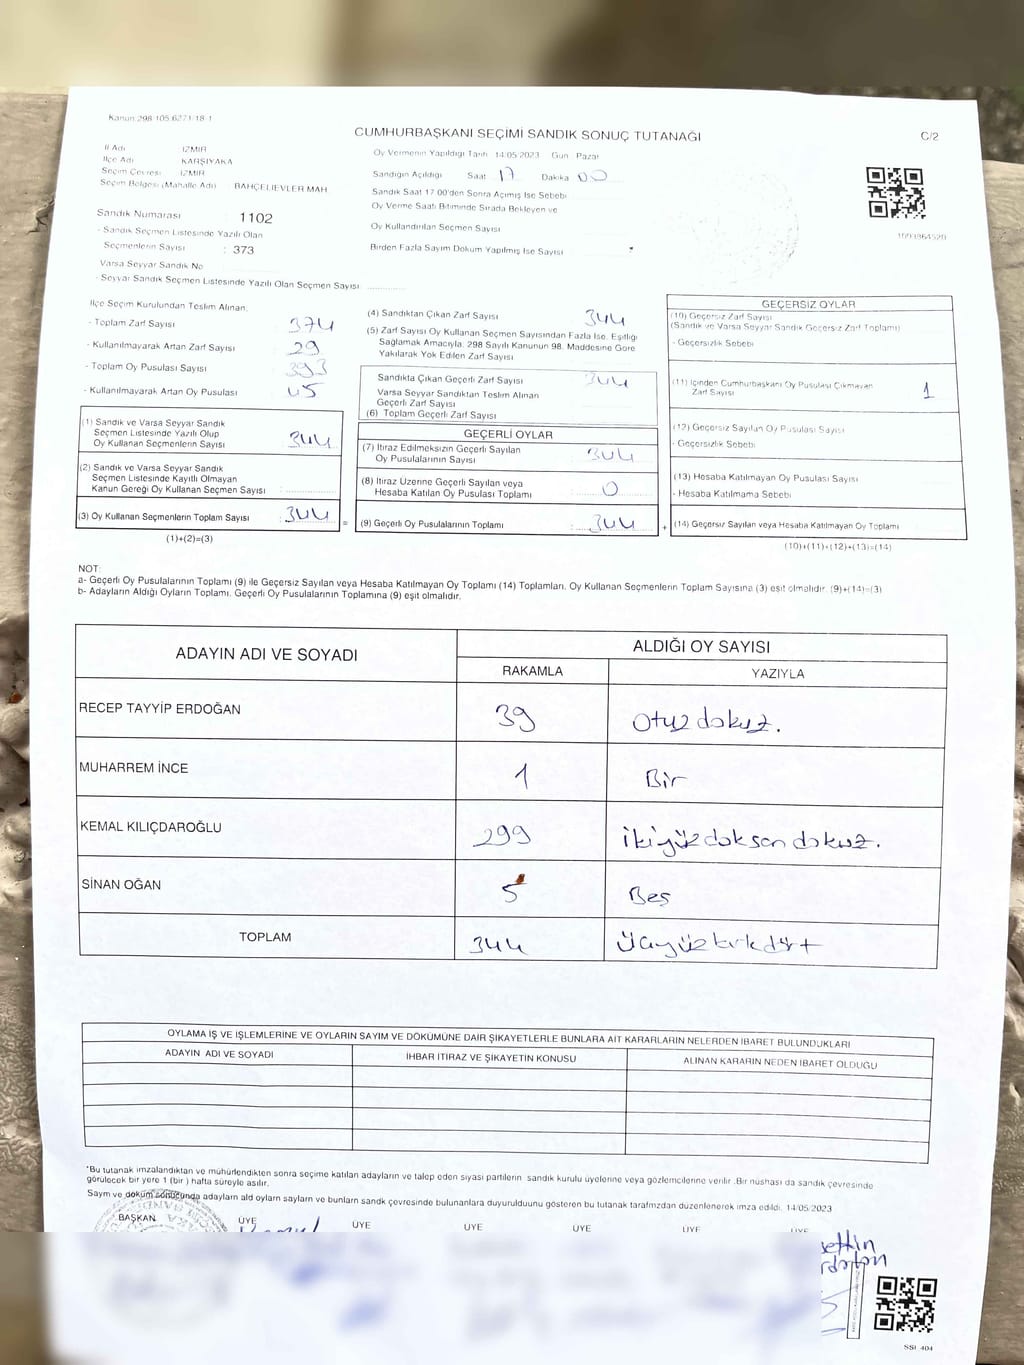 Kanun 298.105.6271/18-1
CUMHURBAŞKANI SEÇİMİ SANDIK SONUÇ TUTANAĞI
C/2
İl Adı : İZMİR
İlçe Adı : KARŞIYAKA
Seçim Çevresi : İZMİR
Seçim Bölgesi (Mahalle Adı) : BAHÇELİEVLER MAH.
Sandık Numarası : 1102
- Sandık Seçmen Listesinde Yazılı Olan
Seçmenlerin Sayısı : 373
Varsa Seyyar Sandık No
- Seyyar Sandık Seçmen Listesinde Yazılı Olan Seçmen Sayısı : ............
Oy Vermenin Yapıldığı Tarih : 14/05/2023 Gün : Pazar
Sandığın Açıldığı Saat : 17 Dakika : 00
Sandık Saat 17:00'den Sonra Açılmış İse Sebebi
Oy Verme Saati Bitiminde Sırada Bekleyen ve
Oy Kullandırılan Seçmen Sayısı
Birden Fazla Sayım Döküm Yapılmış İse Sayısı
1093864520
İlçe Seçim Kurulundan Teslim Alınan:
- Toplam Zarf Sayısı : 374
- Kullanılmayarak Artan Zarf Sayısı : 29
- Toplam Oy Pusulası Sayısı : 393
- Kullanılmayarak Artan Oy Pusulası : 45
(1) Sandık ve Varsa Seyyar Sandık
Seçmen Listesinde Yazılı Olup
Oy Kullanan Seçmenlerin Sayısı : 344
(2) Sandık ve Varsa Seyyar Sandık
Seçmen Listesinde Kayıtlı Olmayan
Kanun Gereği Oy Kullanan Seçmen Sayısı :
(3) Oy Kullanan Seçmenlerin Toplam Sayısı : 344
(1)+(2)=(3)
(4) Sandıktan Çıkan Zarf Sayısı : 344
(5) Zarf Sayısı Oy Kullanan Seçmen Sayısından Fazla İse, Eşitliği
Sağlamak Amacıyla, 298 Sayılı Kanunun 98. Maddesine Göre
Yakılarak Yok Edilen Zarf Sayısı
Sandıkta Çıkan Geçerli Zarf Sayısı : 344
Varsa Seyyar Sandıktan Teslim Alınan
Geçerli Zarf Sayısı
(6) Toplam Geçerli Zarf Sayısı
GEÇERLİ OYLAR
(7) İtiraz Edilmeksizin Geçerli Sayılan
Oy Pusulalarının Sayısı : 344
(8) İtiraz Üzerine Geçerli Sayılan veya
Hesaba Katılan Oy Pusulası Toplamı : 0
= (9) Geçerli Oy Pusulalarının Toplamı : 344 +
GEÇERSİZ OYLAR
(10) Geçersiz Zarf Sayısı
(Sandık ve Varsa Seyyar Sandık Geçersiz Zarf Toplamı)
- Geçersizlik Sebebi
(11) İçinden Cumhurbaşkanı Oy Pusulası Çıkmayan
Zarf Sayısı 1
(12) Geçersiz Sayılan Oy Pusulası Sayısı
- Geçersizlik Sebebi
(13) Hesaba Katılmayan Oy Pusulası Sayısı
- Hesaba Katılmama Sebebi
(14) Geçersiz Sayılan veya Hesaba Katılmayan Oy Toplamı
(10)+(11)+(12)+(13)=(14)
NOT:
a- Geçerli Oy Pusulalarının Toplamı (9) ile Geçersiz Sayılan veya Hesaba Katılmayan Oy Toplamı (14) Toplamları, Oy Kullanan Seçmenlerin Toplam Sayısına (3) eşit olmalıdır. (9)+(14)=(3)
b- Adayların Aldığı Oyların Toplamı, Geçerli Oy Pusulalarının Toplamına (9) eşit olmalıdır.
ADAYIN ADI VE SOYADI
ALDIĞI OY SAYISI
RAKAMLA YAZIYLA
RECEP TAYYİP ERDOĞAN 39 otuz dokuz.
MUHARREM İNCE 1 Bir
KEMAL KILIÇDAROĞLU 299 ikiyüz doksan dokuz.
SİNAN OĞAN 5 Beş
TOPLAM 344 üçyüz kırk dört
OYLAMA İŞ VE İŞLEMLERİNE VE OYLARIN SAYIM VE DÖKÜMÜNE DAİR ŞİKAYETLERLE BUNLARA AİT KARARLARIN NELERDEN İBARET BULUNDUKLARI
ADAYIN ADI VE SOYADI İHBAR İTİRAZ VE ŞİKAYETİN KONUSU ALINAN KARARIN NEDEN İBARET OLDUĞU
*Bu tutanak imzalandıktan ve mühürlendikten sonra seçime katılan adayların ve talep eden siyasi partilerin sandık kurulu üyelerine veya gözlemcilerine verilir. Bir nüshası da sandık çevresinde
görülecek bir yere 1 (bir) hafta süreyle asılır.
Sayım ve döküm sonucunda adayların ald oyların sayların ve bunların sandk çevresinde bulunanlara duyurulduunu gösteren bu tutanak tarafmzdan düzenlenerek imza edildi. 14/05/2023
BAŞKAN ÜYE ÜYE ÜYE ÜYE ÜYE ÜYE
SSI: 404